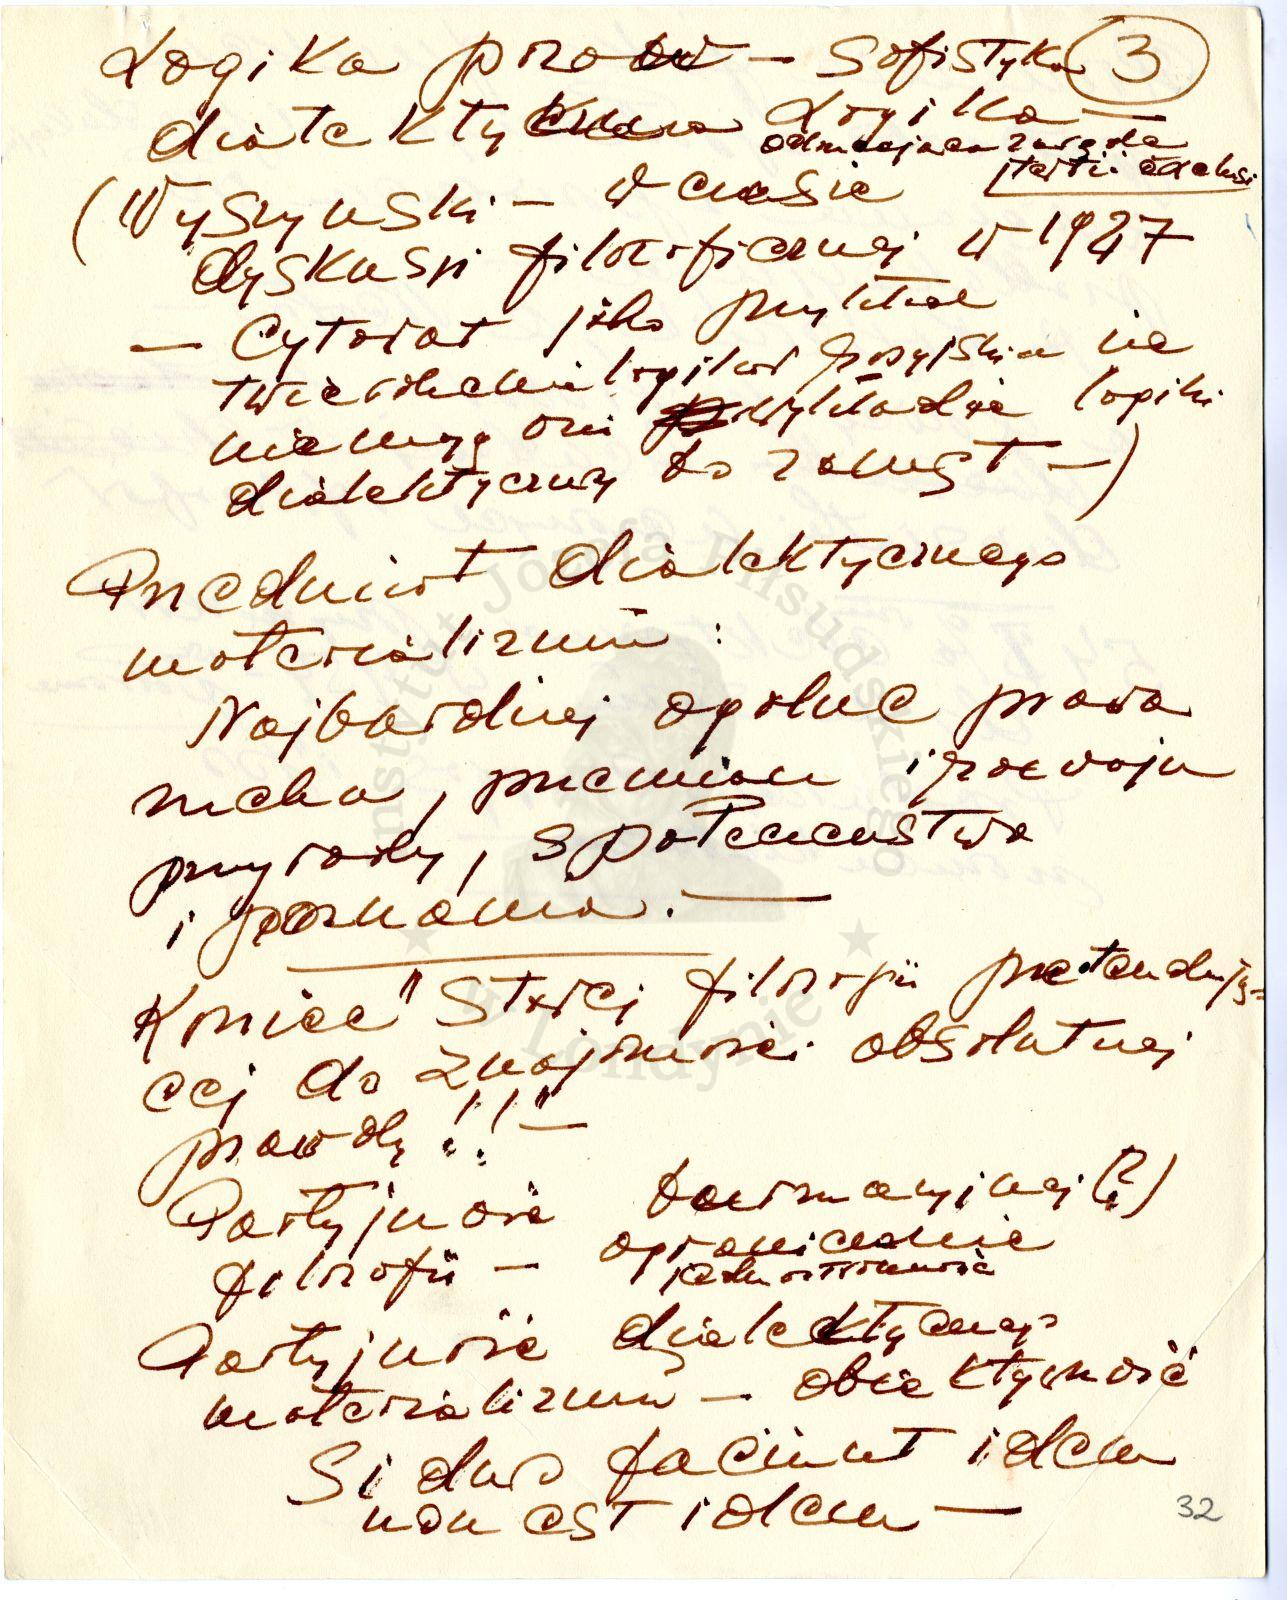 Logika praw — Sofistyka 3
dialektyczna Logika —
odrzucająca zasadę
tertii exclusi
(Wyszyński — w czasie
dyskusji filozoficznej w 1947
— Cytował jako przykład
twierdzenie logików że
nie mogą oni wykładać logiki
dialektycznej bo —)
Przedmiot dialektycznego
materializmu:
Najbardziej ogólne prawa
ruchu, przemian i rozwoju
przyrody, społeczeństwa
i poznania. —
Koniec "Starej filozofii pretendują=
cej do znajomości absolutnej
prawdy!!" —
Partyjność burżuazyjnej (?)
filozofii — ograniczenie
jednostronność
Partyjność dialektycznego
materializmu — obiektywność
Si duo faciunt idem
non est idem —
32
Instytut Józefa Piłsudskiego
w Londynie